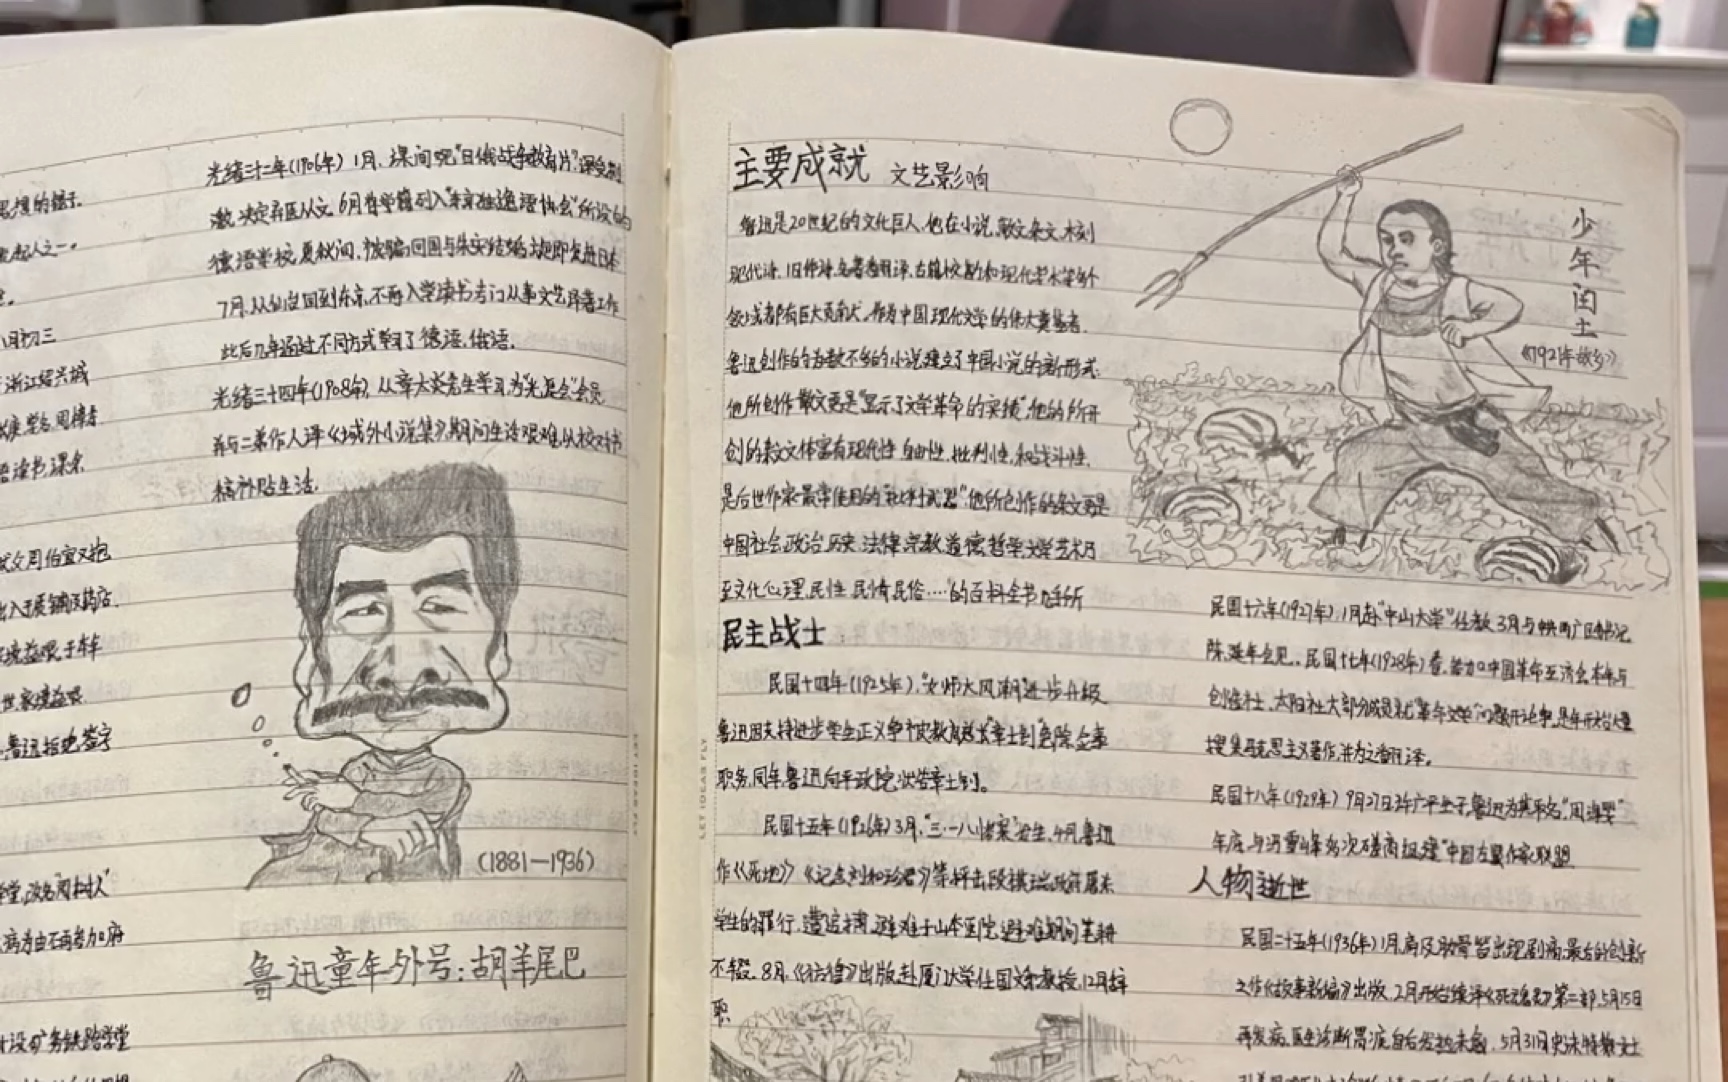 思想的镜子.
起人之一。
八月初三
浙江绍兴城
学名周樟寿
语读书,课余
伯宜又抱
出入于质铺及药店.
世,家境益艰.
鲁迅拒绝签字
学堂,改名"周树人"
病为由不再参加府
设矿务铁路学堂
光绪三十二年(1906年)1月,课间观"日俄战争教育片",深受刺
激,决定弃医从文.6月将学籍列入"东京独逸语协会"所设的
德语学校,夏秋间,被骗回国与朱安结婚,旋即复赴日本
7月,从仙台回到东京,不再入学读书专门从事文艺译著工作
此后几年通过不同方式学习了德语.俄语.
光绪三十四年(1908年),从章太炎先生学习,为"光复会"会员
并与二弟作人译《域外小说集》,期间生活艰难,从校对书
稿补贴生活.
(1881—1936)
鲁迅童年外号:胡羊尾巴
LET IDEAS FLY
LET IDEAS FLY
主要成就 文艺影响
鲁迅是20世纪的文化巨人,他在小说.散文.杂文.木刻
现代诗.旧体诗.名著翻译.古籍校勘和现代学术等多个
领域都有巨大贡献.作为中国现代文学的伟大奠基者.
鲁迅创作的为数不多的小说建立了中国小说的新形式.
他所创作散文更是"显示了文学革命的实绩".他的所开
创的杂文文体富有现代性.自由性.批判性.和战斗性.
是后世作家最常使用的"批判武器"他所创作的杂文更是
中国社会.政治.历史.法律.宗教.道德.哲学.文学.艺术乃
至文化心理.民性.民情.民俗……的百科全书
民主战士
民国十四年(1925年),"女师大风潮"进一步升级
鲁迅因支持进步学生正义争被教育总长"章士钊"免除佥事
职务,同年鲁迅向平政院状告章士钊。
民国十五年(1926年)3月,"三·一八惨案"发生,4月,鲁迅
作《死地》《记念刘和珍君》等,抨击段祺瑞政府屠杀
学生的罪行.遭追捕,避难于山本医院.避难期间笔耕
不辍.8月,《彷徨》出版,赴厦门大学任国文系教授,12月辞
职
少年闰土
《1921年故乡》
民国十六年(1927年),1月赴"中山大学"任教.3月与中共两广区委书记
陈延年会见。民国十七年(1928年)春,参加中国革命互济会.本年与
创造社、太阳社大部分成员就"革命文学"问题开论争,是年开始大量
搜集马克思主义著作,并为之翻译。
民国十八年(1929年)9月27日,许广平生子,鲁迅为其取名"周海婴"
年底,与冯雪峰多次磋商组建"中国左翼作家联盟
人物逝世
民国二十五年(1936年)1月,肩及肋骨皆出现剧痛,最后的创新
之作《故事新编》出版.2月开始续译《死魂灵》第二部,5月15日
再发病.医生诊断胃疾,自后发热未愈.5月31日史沫特莱女士